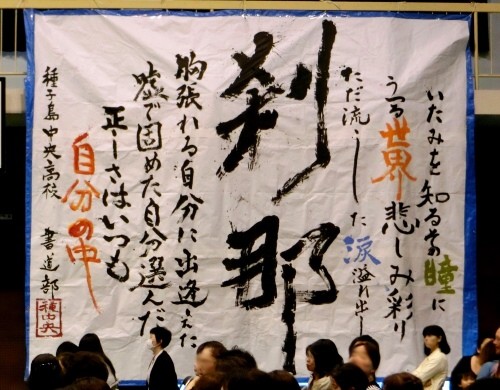 いたみを知るその瞳に
うつる世界悲しみ彩り
ただ流した涙溢れ出し
刹那
胸張れる自分に出逢えた
嘘で固めた自分選んだ
正しさはいつも
自分の中
種子島中央高校 書道部
種中央